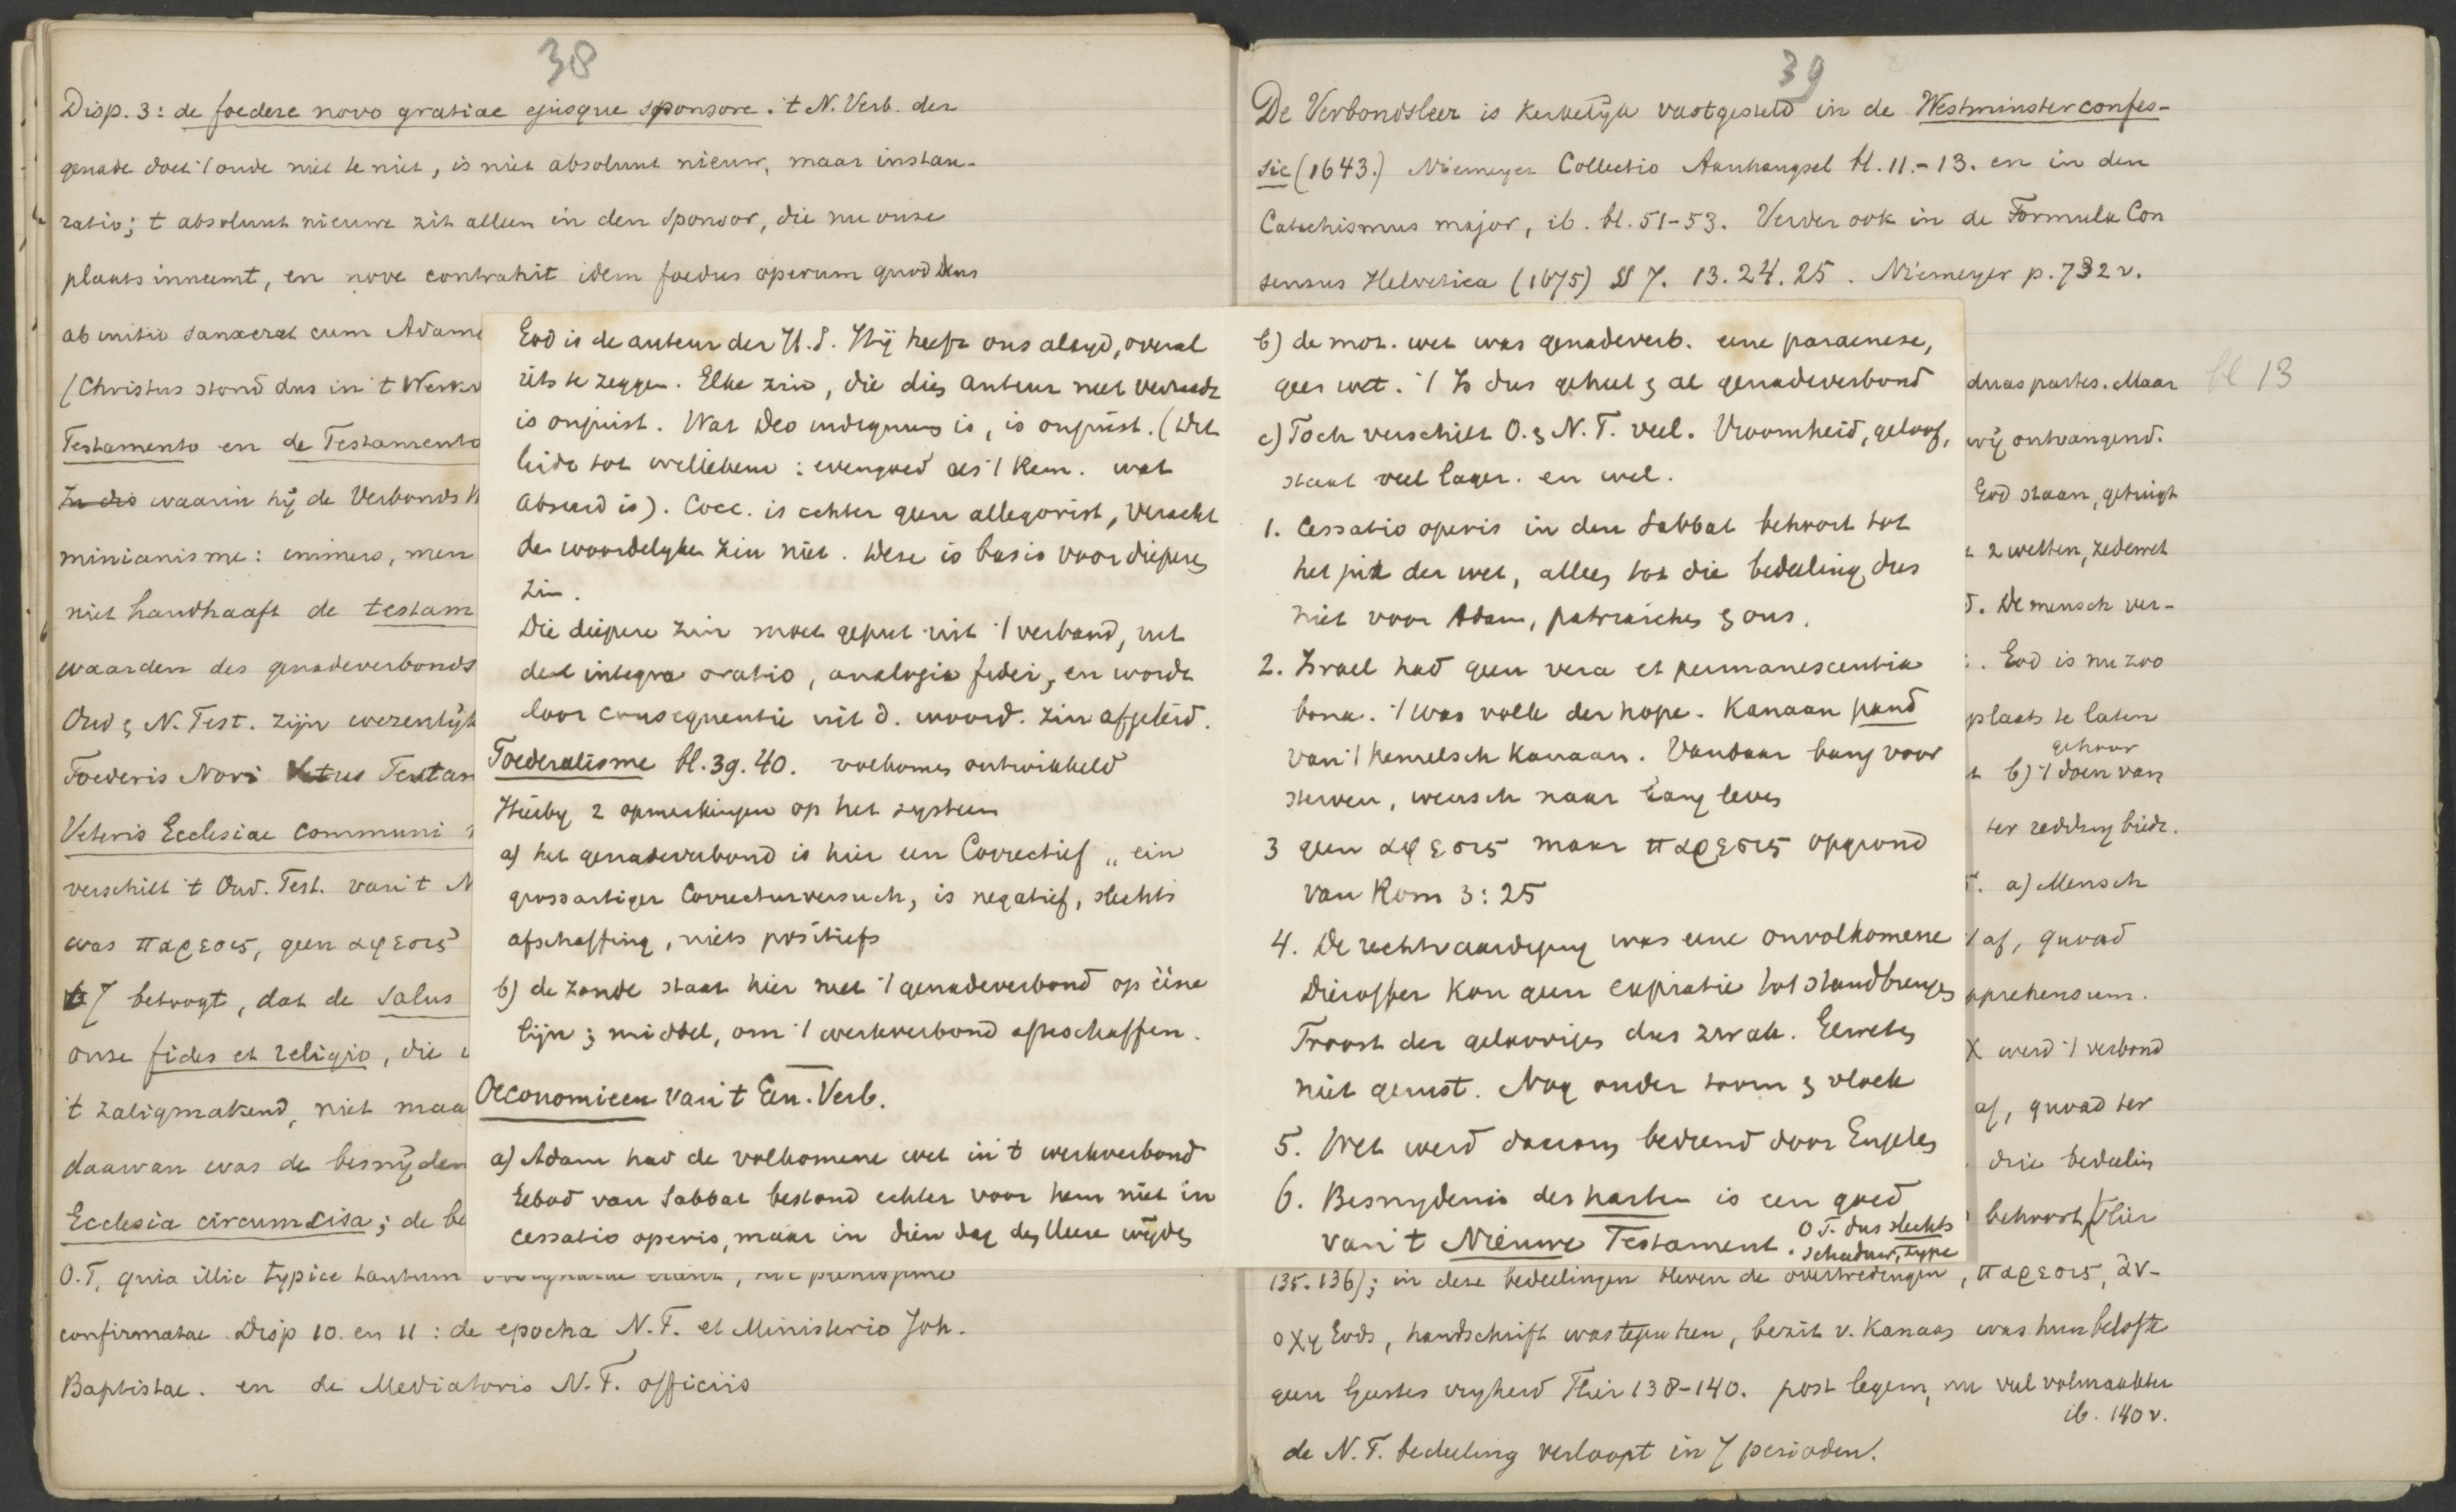 38
Disp. 3: de foedere novo gratiae ejusque sponsore. 't N. Verb. der
genade doet 't oude niet te niet, is niet absoluut nieuw, maar instau-
ratio; 't absoluut nieuwe zit alleen in den sponsor, die nu onze
plaats inneemt, en nove contrahit idem foedus operum quod Deus
ab initio sanxerat cum Adamo
(Christus stond dus in 't Werkv
Testamento en de Testamento
In dis waarin hij de Verbonds
minianisme: immers, men
niet handhaaft de testam
waarden des genadeverbonds
Oud & N. Test. zijn wezenlijk
Foederis Novi Vetus Testam
Veteris Ecclesiae communi
verschilt 't Oud. Test. van 't N
was παρεσις, geen αφεσις
7 betoogt, dat de salus
onze fides et religio, die
't zaligmakend, niet maa
daarvan was de besnijden
Ecclesia circumcisa; de be
O.T, quia illic typice tantum
confirmatae. Disp 10. en 11: de epocha N.T. et Ministerio Joh.
Baptistae. en de Mediatoris N.T. officiis
God is de auteur der H.S. Hij heeft ons altyd, overal
iets te zeggen. Elke zin, die dien auteur niet verraadt
is onjuist. Wat Deo indignum is, is onjuist. (Dit
leidt tot weliebem: evengoed als 't kan. wat
absurd is). Cocc. is echter geen allegorist, veracht
den woordelyken zin niet. Deze is basis voor diepere
zin.
Die diepere zin moet geput uit 't verband, uit
de integra oratio, analogia fidei, en wordt
door consequentie uit d. woord. zin afgeleid.
Foederalisme bl. 39. 40. volkomen ontwikkeld
Hierby 2 opmerkingen op het systeem
a) het genadeverbond is hier een Correctief „ein
grossartiger Correcturversuch, is negatief, slechts
afschaffing, niets positiefs
b) de zonde staat hier met 't genadeverbond op ééne
lijn; middel, om 't werkverbond afteschaffen.
Oeconomieen van 't Gen. Verb.
a) Adam had de volkomene wet in 't werkverbond
Gebod van Sabbat bestond echter voor hem niet in
cessatio operis, maar in dien dag den Heere wijden
39
De Verbondsleer is kerkelijk vastgesteld in de Westminsterconfes-
sie (1643.) Niemeyer Collectio Aanhangsel bl. 11.-13. en in den
Catechismus major, ib. bl. 51-53. Verder ook in de Formula Con
sensus Helvetica (1675) §§ 7. 13. 24. 25. Niemeyer p. 732 v.
b) de moz. wet was genadeverb. eene paraenese,
geen wet. 't Is dus geheel & al genadeverbond
c) Toch verschilt O. & N. T. veel. Vroomheid, geloof,
staat veel lager. en wel.
1. Cessatio operis in den Sabbat behoort tot
het juk der wet, alleen tot die bedeeling, dus
niet voor Adam, patriarchen & ons.
2. Israel had geen vera et permanescentia
bona. 't was volk der hope. Kanaan pand
van 't hemelsch Kanaan. Vandaar bang voor
sterven, wensch naar lang leven
3 geen αφεσις maar παρεσις opgrond
van Rom 3:25
4. De rechtvaardiging was eene onvolkomene
Dieroffer kon geen expiatie tot stand brengen
Troost der geloovigen dus zwak. Geweten
niet gerust. Nog onder toorn & vloek
5. Wet werd daarom bediend door Engelen
6. Besnydenis des harten is een goed
van 't Nieuwe Testament. O.T. dus slechts
schaduw, type
duas partes. Maar
bl 13
wij ontvangend.
God staan, getuigt
2 wetten, zedewet
De mensch ver-
God is nu zoo
plaats te laten
gehoor
b) 't doen van
ter redding biedt.
a) Mensch
't af, quoad
apprehensum.
X werd 't verbond
af, quoad ter
drie bedeelin
behoort, Hier
135. 136); in deze bedeelingen bleven de overtredingen, παρεσις, αν-
οχη Gods, handschrift was tegen hen, bezit v. Kanaan was hun belofte
geen Geestes vryheid Hier 138-140. post legem, nu veel volmaakter
ib. 140 v.
de N.T. bedeeling verloopt in 7 perioden.